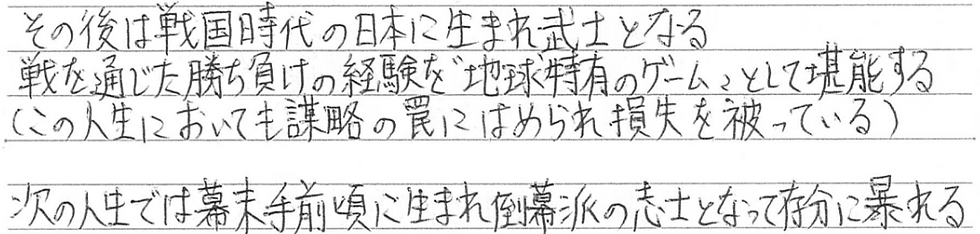 その後は戦国時代の日本に生まれ武士となる
戦を通じた勝ち負けの経験を“地球特有のゲーム”として堪能する
(この人生においても謀略の罠にはめられ損失を被っている)
次の人生では幕末手前頃に生まれ倒幕派の志士となって存分に暴れる